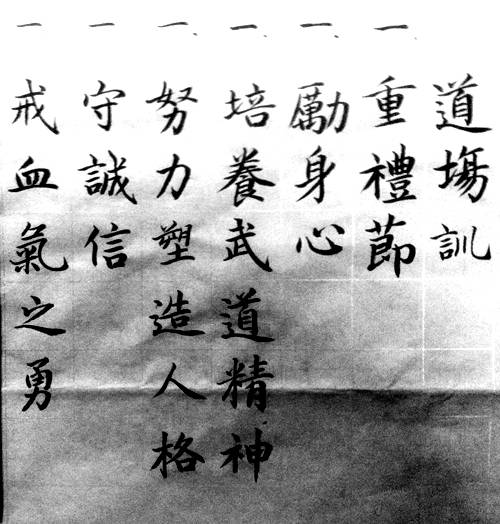 道場訓
一、重禮節
一、勵身心
一、培養武道精神
一、努力塑造人格
一、守誠信
一、戒血氣之勇